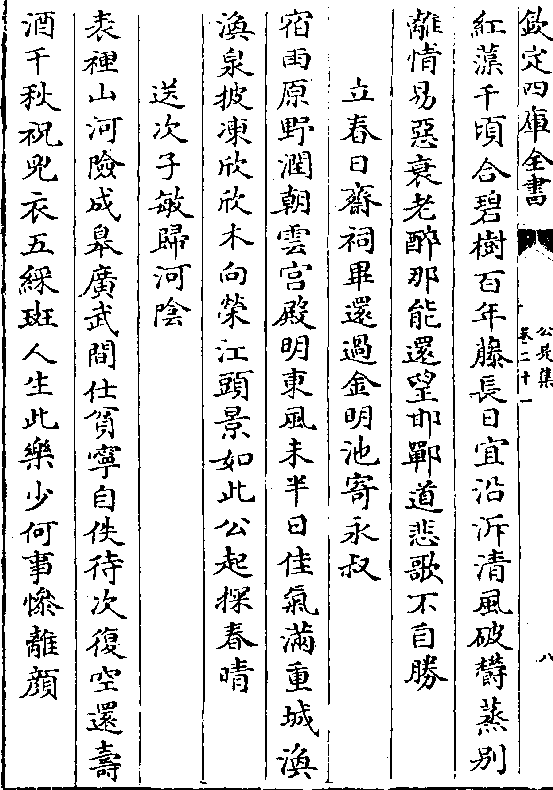 欽定四庫全書
公是集
卷二十一
八
紅藻千頃合碧樹百年藤長日宜沿泝清風破鬱蒸别
離情易惡衰老醉那能還望邯鄲道悲歌不自勝
立春日齋祠畢還過金明池寄永叔
宿雨原野潤朝雲宫殿明東風未半日佳氣滿重城渙
渙泉披凍欣欣木向榮江頭景如此公起探春晴
送次子敏歸河陰
表裡山河險成皋廣武間仕貧寧自佚待次復空還壽
酒千秋祝兕衣五綵斑人生此樂少何事慘離顔